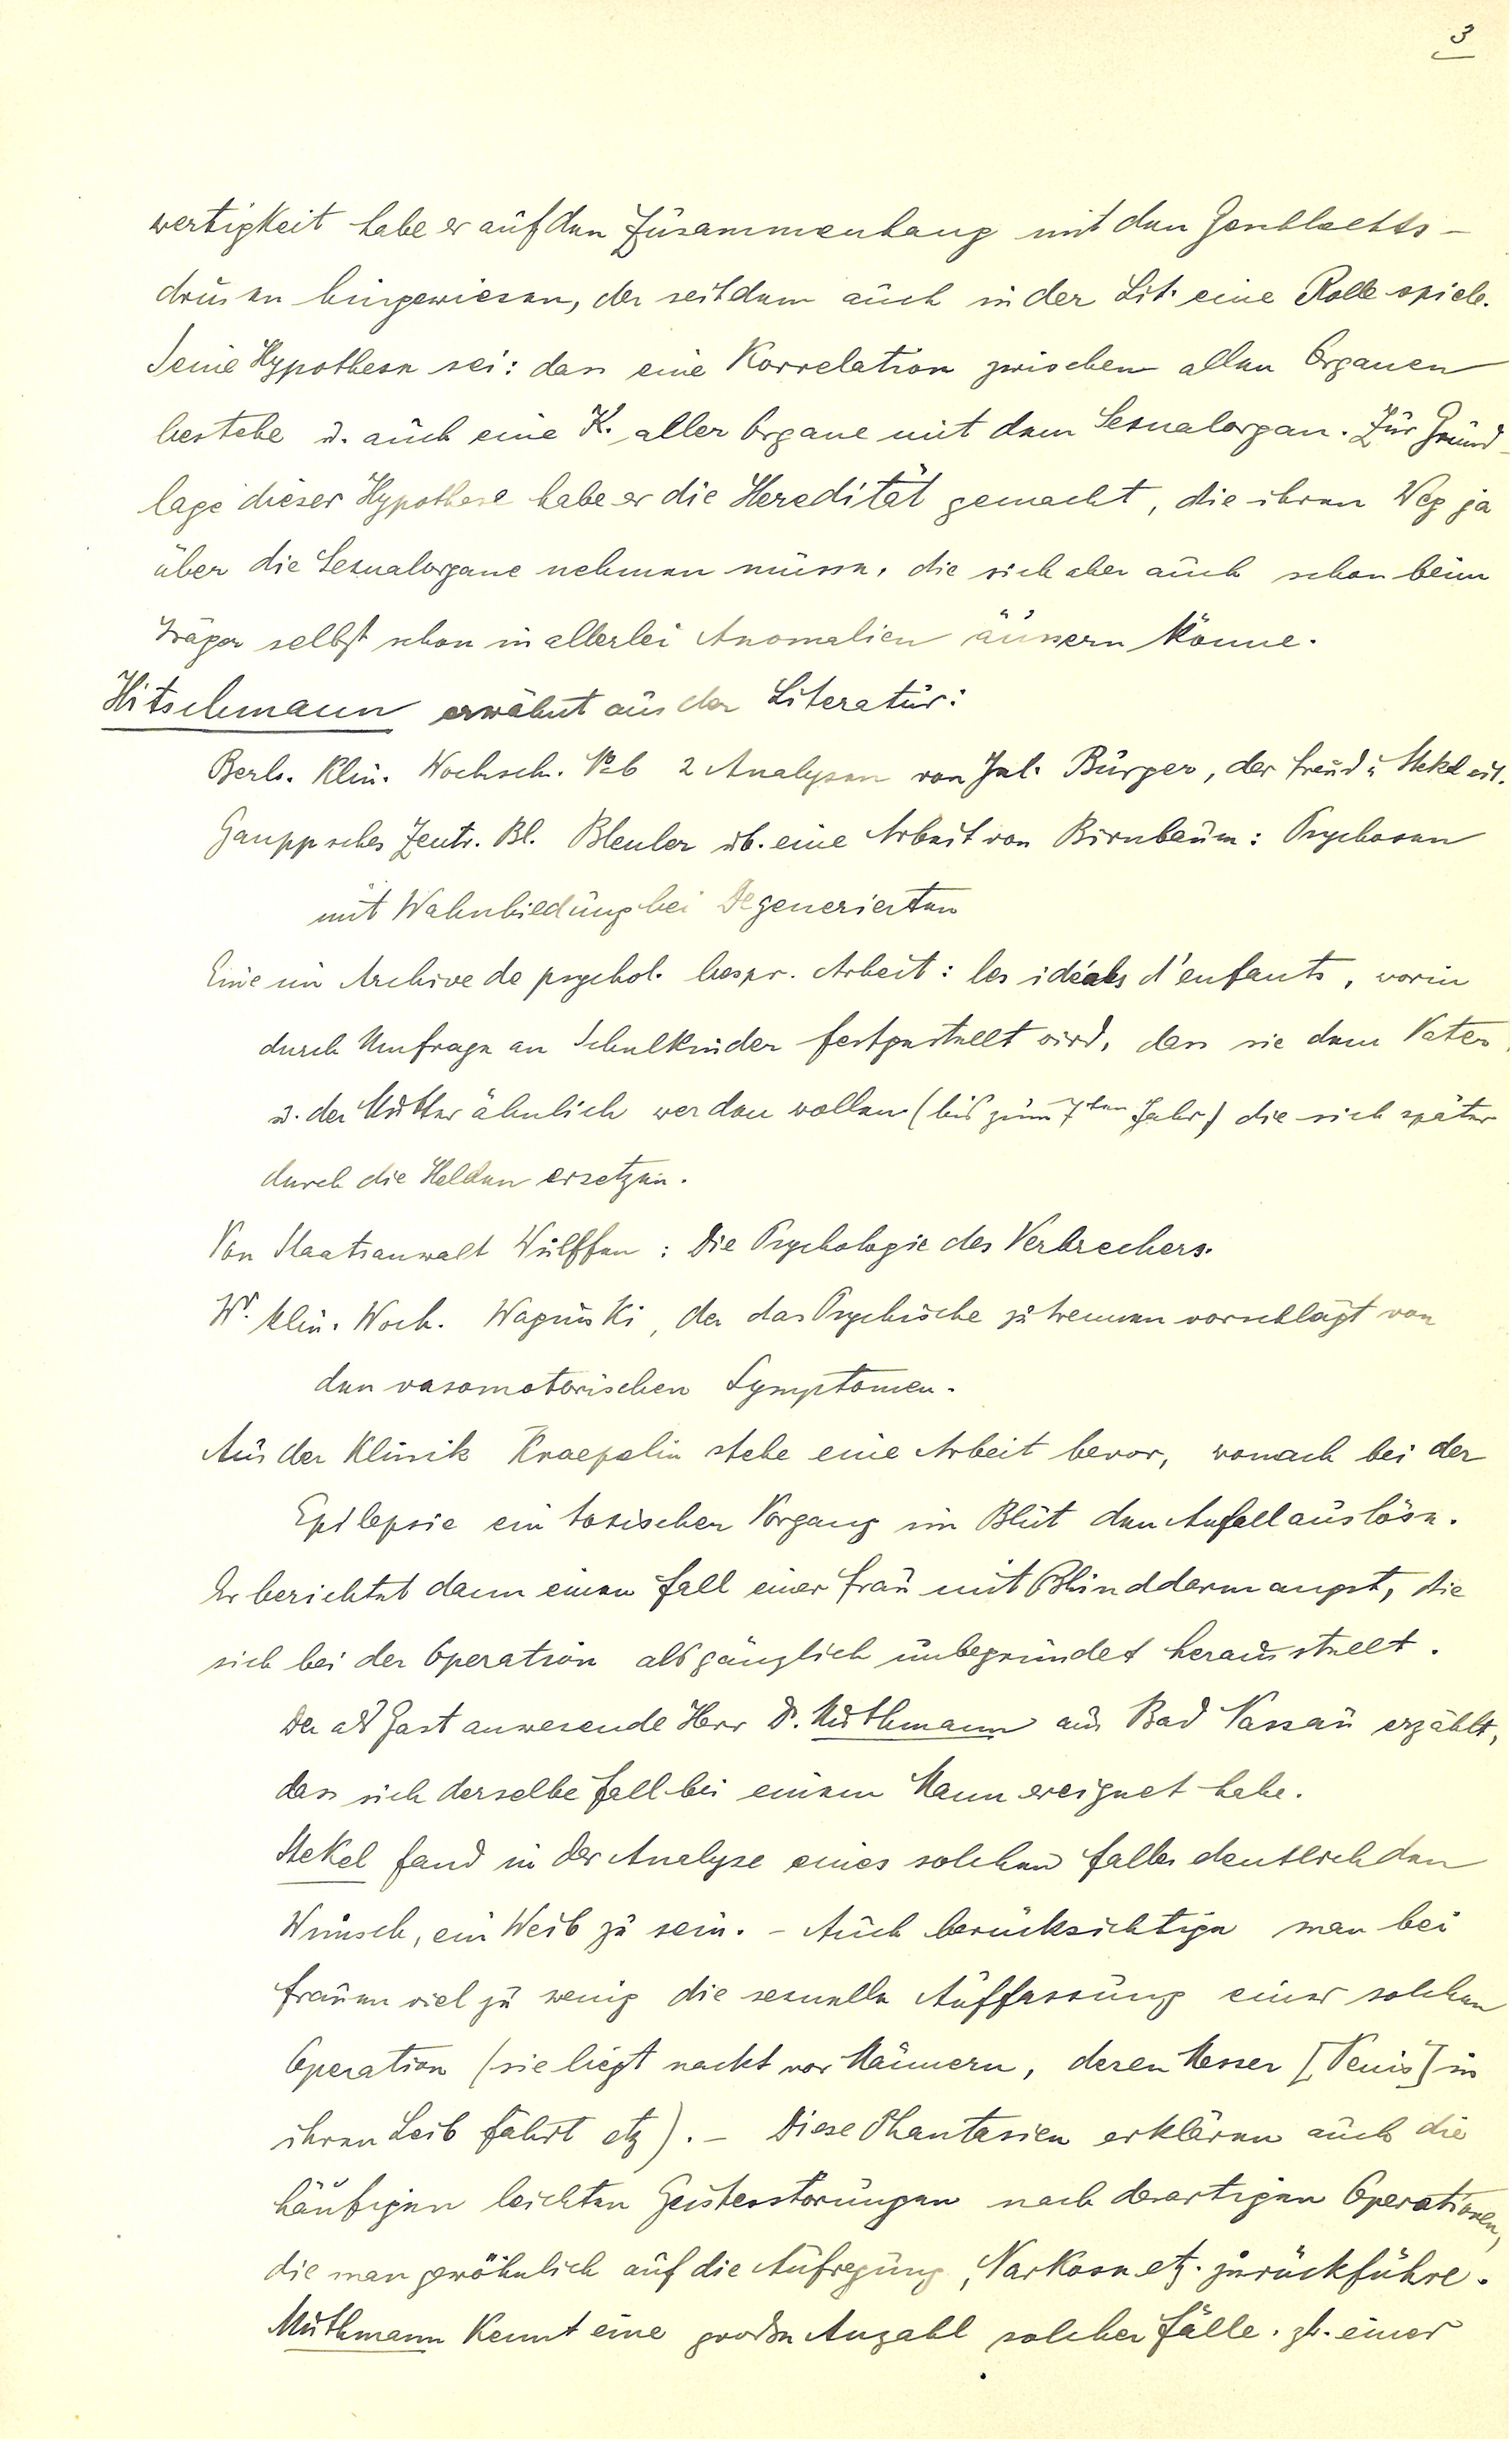 3
wertigkeit habe er auf den Zusammenhang mit den Geschlechts-
drüsen hingewiesen, der seitdem auch in der Lit. eine Rolle spiele.
Seine Hypothese sei: dass eine Korrelation zwischen allen Organen
bestehe u. auch eine K. aller Organe mit dem Sexualorgan. Zur Grund-
lage dieser Hypothese habe er die Heredität gemacht, die ihren Weg ja
über die Sexualorgane nehmen müsse, die sich aber auch schon beim
Träger selbst schon in allerlei Anomalien äussern könne.
Hitschmann erwähnt aus der Literatur:
Berl. Klin. Wochsch. No 6 2 Analysen von Jul. Burger, der Freud u Stekel zit.
Gauppsches Zentr. Bl. Bleuler üb. eine Arbeit von Birnbaum: Psychosen
mit Wahnbildung bei Degenerierten
Eine im Archive de psychol. bespr. Arbeit: les idéals d'enfants, worin
durch Umfrage an Schulkinder festgestellt wird, dass sie dem Vater
u. der Mutter ähnlich werden wollen (bis zum 7ten Jahr) die sich später
durch die Helden ersetzen.
Von Staatsanwalt Wulffen: Die Psychologie des Verbrechers.
Wr. klin. Woch. der das Psychische zu trennen vorschlägt von
den vasomotorischen Symptomen.
Aus der Klinik Kraepelin stehe eine Arbeit bevor, wonach bei der
Epilepsie ein toxischer Vorgang im Blut den Anfall auslöse.
Er berichtet dann einen Fall einer Frau mit Blinddarmangst, die
sich bei der Operation als gänzlich unbegründet herausstellt.
Der als Gast anwesende Herr Dr. Muthmann aus Bad Nassau erzählt,
dass sich derselbe Fall bei einem Mann ereignet habe.
Stekel fand in der Analyse eines solchen Falles deutlich den
Wunsch, ein Weib zu sein. - Auch berücksichtige man bei
Frauen viel zu wenig die sexuelle Auffassung einer solchen
Operation (sie liegt nackt vor Männern, deren Messer [Penis] in
ihren Leib fährt etz). - Diese Phantasien erklären auch die
häufigen leichten Geistesstörungen nach derartigen Operationen,
die man gewöhnlich auf die Aufregung, Narkose etz. zurückführe.
Muthmann kennt eine große Anzahl solcher Fälle. zb. einer